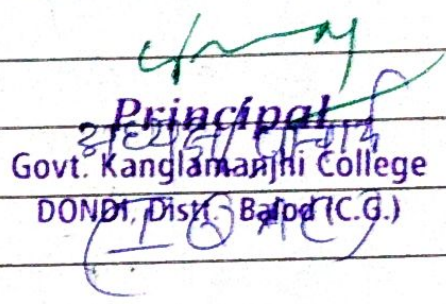 Principal
अध्यक्ष/प्राचार्य
Govt. Kanglamanjhi College
DONDI, Distt. Balod (C.G.)